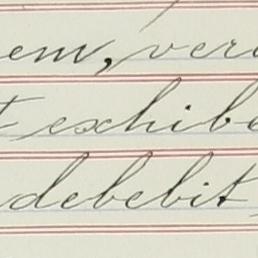 em, ver
t exhibe
debebit,